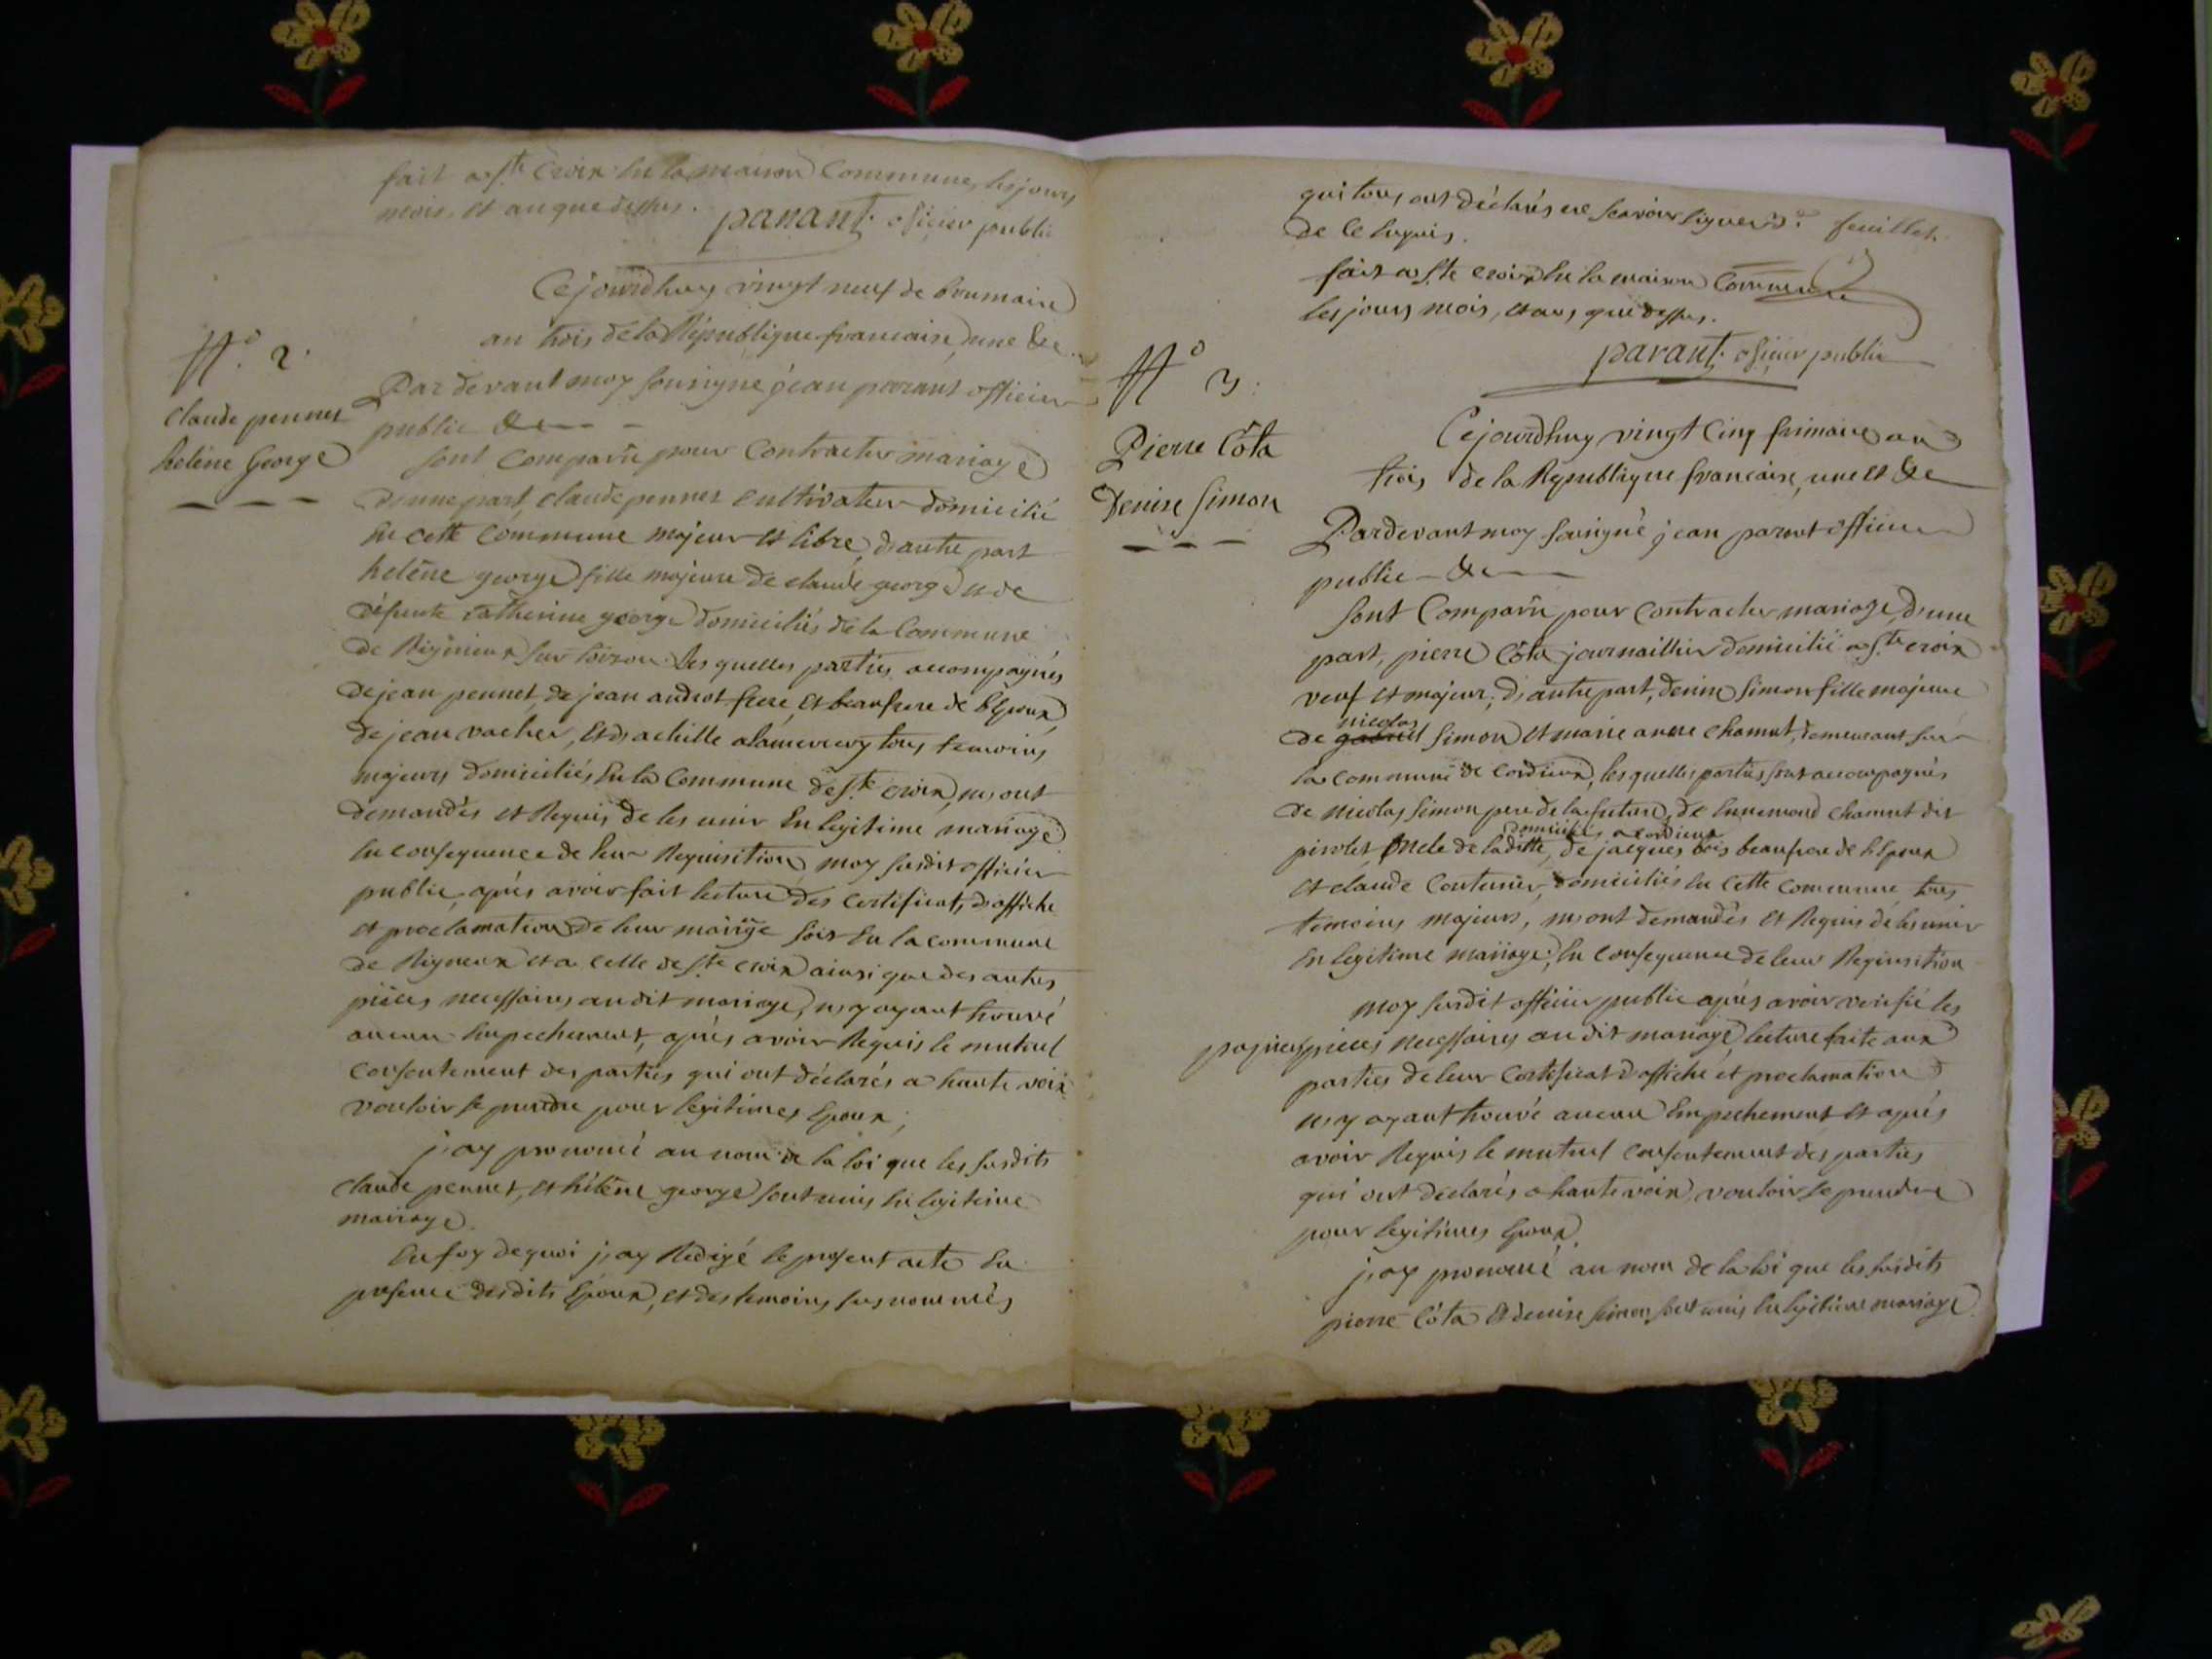 fait a Ste Croix En la maison Commune, les jours
mois, et an que dessus.
parant officier public
Cejourdhuy vingt neuf de brumaire
an trois de la République francaise, une &c
N.o 2.
claude pennet
helène George
Par devant moy sousigné jean parant officier
public &c
sont Comparu pour Contracter mariage
d'une part, claude pennet cultivateur domicilié
En cette Commune majeur et libre, d'autre part
helène george fille majeure de claude george et de
défunte Catherine george domiciliés de la Commune
de Rigneux sur Les quelles parties, accompagnés
de jean pennet, de jean audrot frere, et beaufrere de l'Epoux,
de jean vacher, et d'achille tous temoins
majeurs domiciliés En la Commune de Ste croix, m'ont
demandés et Requis de les unir En legitime mariage
En consequence de leur Requisition, moy susdit officier
public, après avoir fait lecture des certificats, d'affiche
et proclamation de leur mariage soit En la commune
de Rigneux et a celle de Ste croix ainsi que des autres
pièces necessaires audit mariage, n'y ayant trouvé
aucun Empechement, après avoir Requis le mutuel
consentement des parties qui ont déclarés a haute voix
vouloir se prendre pour legitimes Epoux;
j'ay prononcé au nom de la loi que les susdits
claude pennet, et hélène george sont unis En legitime
mariage.
En foy de quoi j'ay Redigé le present acte En
presence desdits Epoux, et des temoins sus nommés
qui tous ont déclarés ne scavoir signer 3.e feuillet
de ce Enquis.
fait a Ste croix En la maison Commune
les jours mois, et ans que dessus.
parant officier public
N.o 3.
Pierre Côta
Denise Simon
Cejourdhuy vingt Cinq frimaire an
trois de la Republique francaise, une et &c
Pardevant moy sousigné jean parant officier
public &c
sont Comparu pour Contracter mariage, d'une
part, pierre Côta journaillier domicilié a Ste croix
veuf et majeur; d'autre part, denise Simon fille majeure
nicolas
de gabriel Simon et marie anne chamut, demeurant sur
la commune de Cordieux, les quelles parties sont accompagnés
de nicolas Simon pere de la future, de Ennemond chamut dit
domiciliés a cordieux
pirolet, Oncle de laditte, de jacques bois beaufrere de l'Epoux
et claude Couturier, domiciliés En cette commune, tous
temoins majeurs, m'ont demandés et Requis de les unir
En legitime mariage; En consequence de leur Requisition
moy susdit officier public après avoir verifié les
pieces necessaires au dit mariage, lecture faite aux
parties de leur Certificat d'affiche et proclamation
n'y ayant trouvé aucun Empechement et après
avoir Requis le mutuel consentement des parties
qui ont declarés a haute voix, vouloir se prendre
pour legitimes Epoux.
j'ay prononcé au nom de la loi que les susdits
pierre Côta et denise Simon sont unis En legitime mariage.